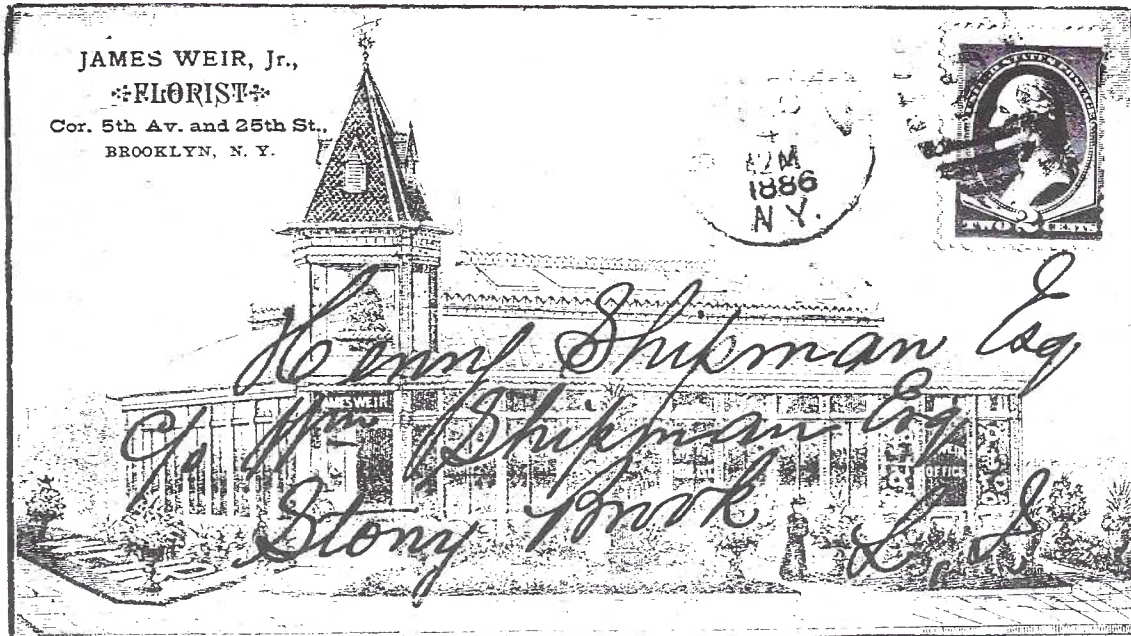 JAMES WEIR, Jr.,
FLORIST
Cor. 5th Av. and 25th St.,
BROOKLYN, N. Y.
12M
1886
N.Y.
UNITED STATES POSTAGE
TWO 2 CENTS
Henry Shipman Esq
C/o Wm Shipman Esq
Stony Brook
L. I.
JAMES WEIR
WEIR
OFFICE